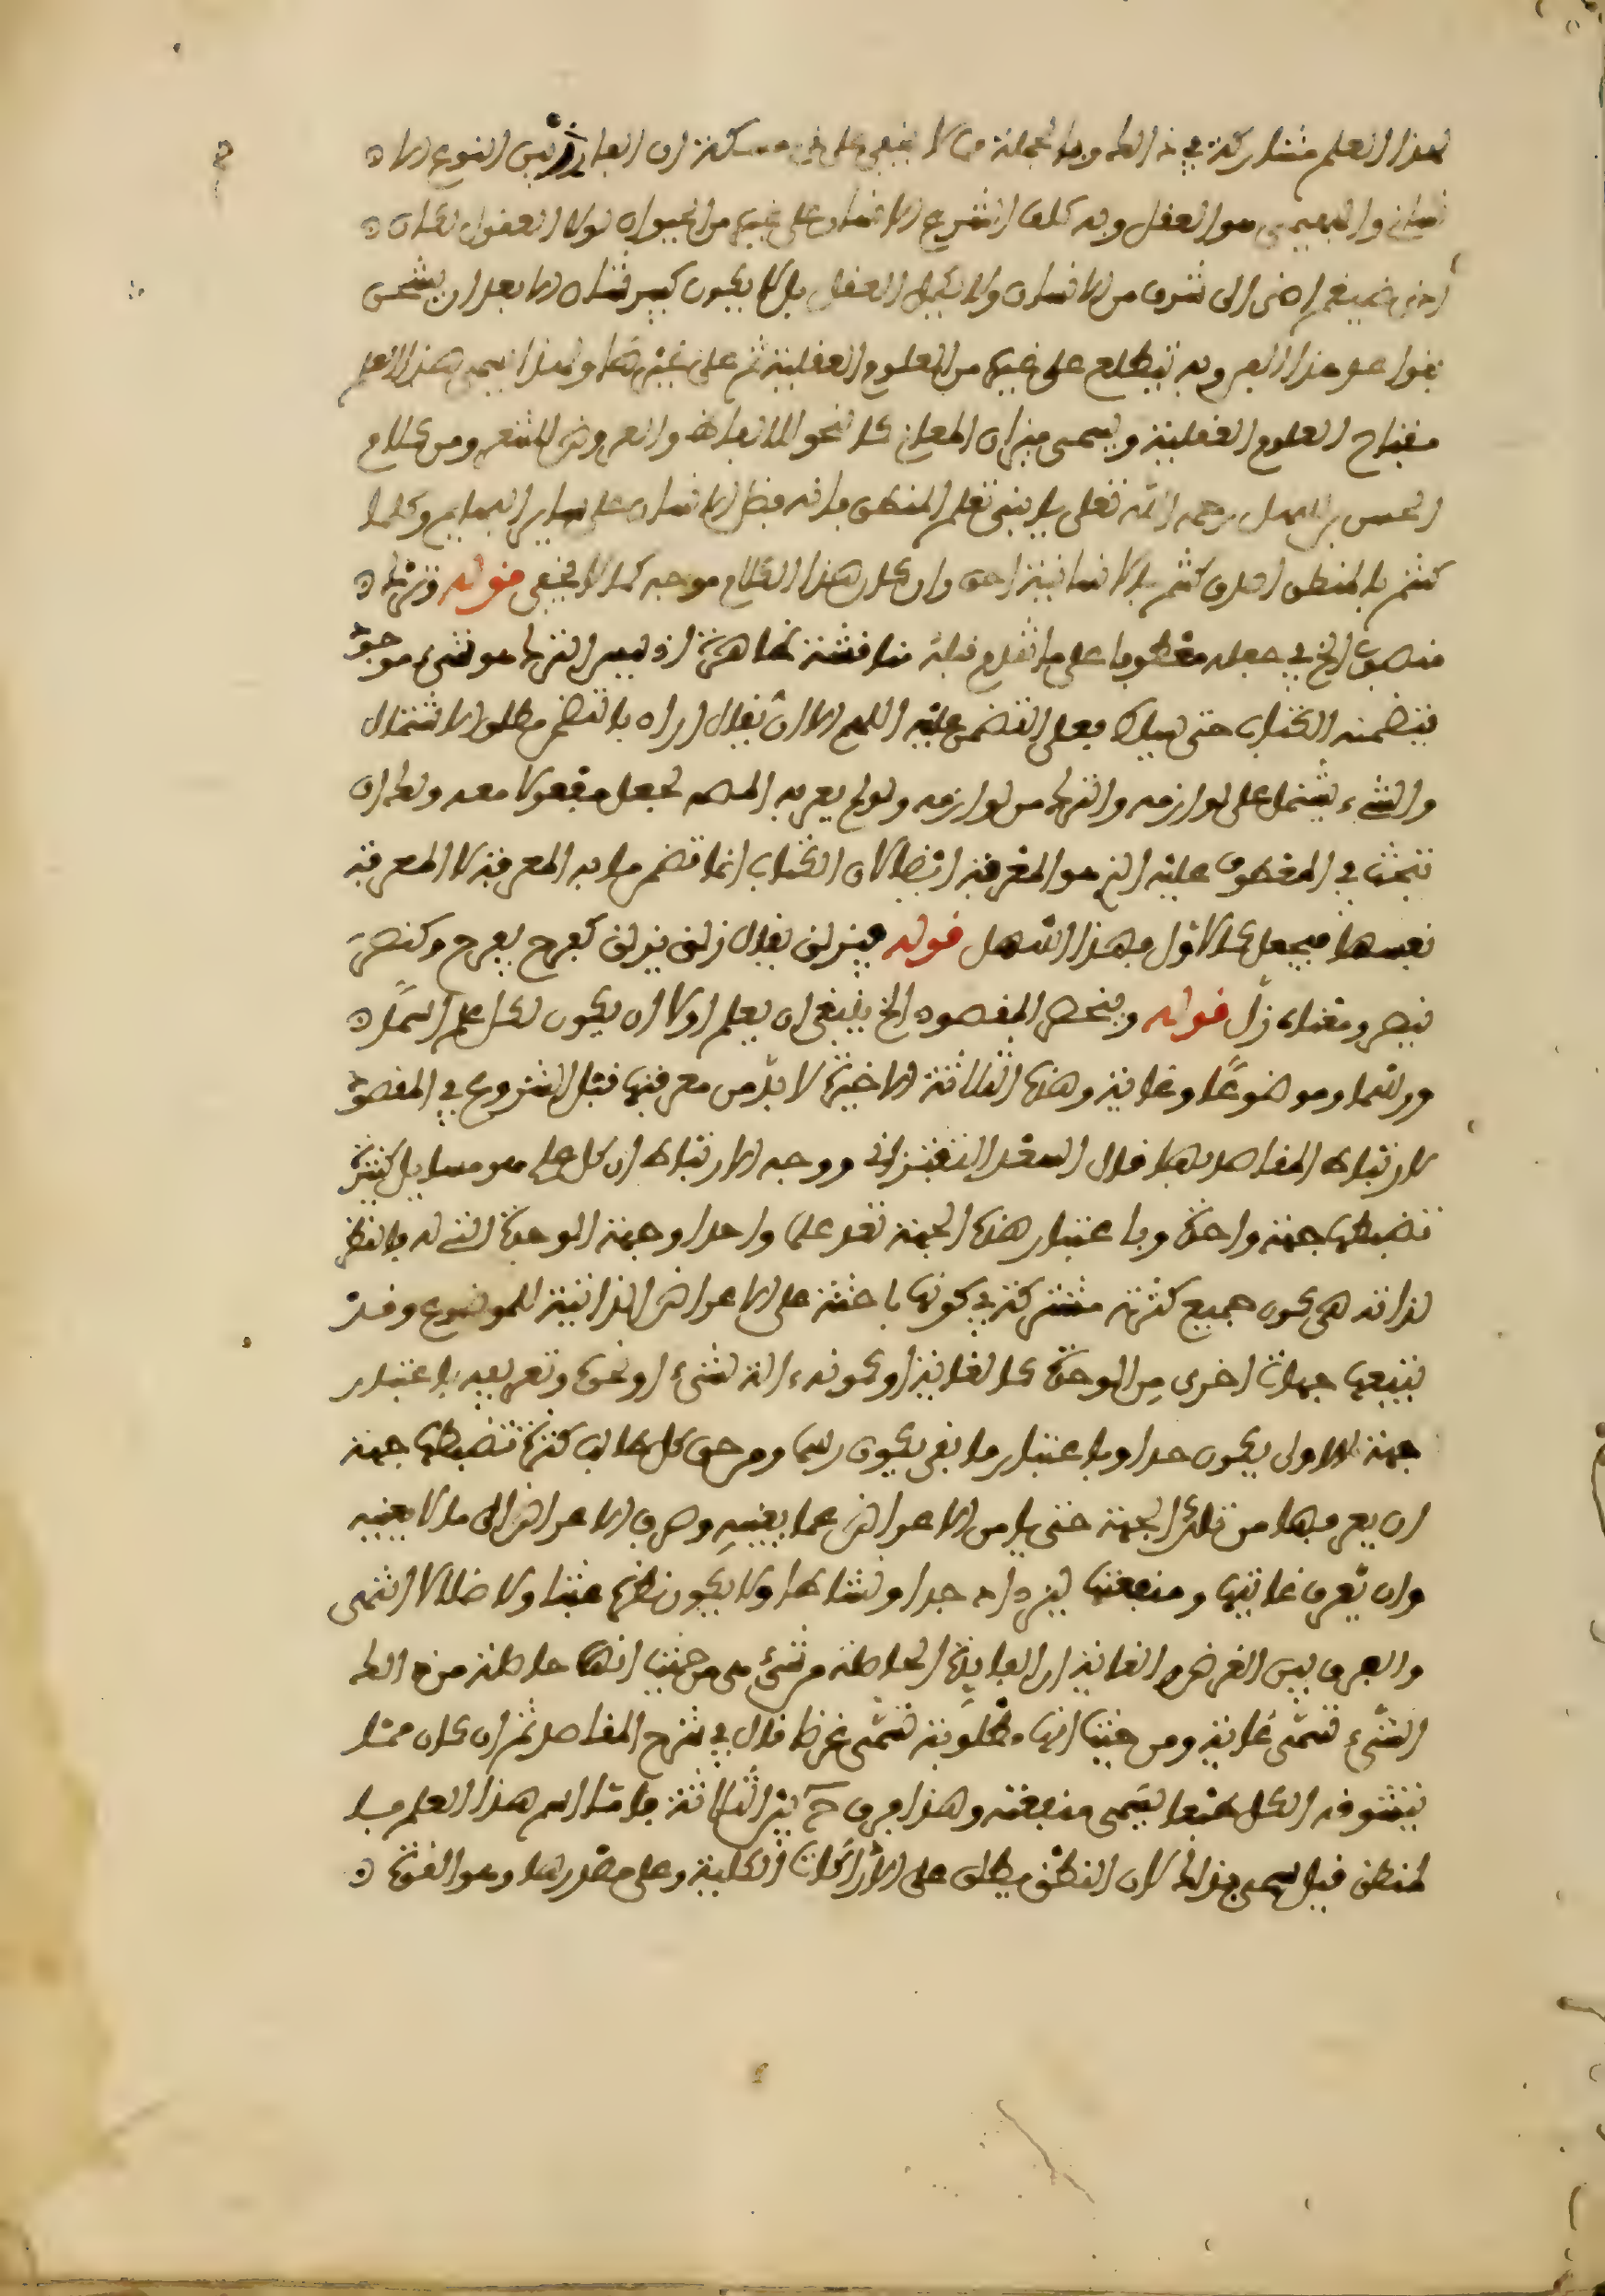 لهذا العلم مشاركة في ذلك وبالجملة مما لا يخفى على ذي مسكة ان الفارق بين النوع الا
نساني والبهيمي هو العقل وبه كلف الشرع الانسان على غيره من الحيوان لولا العقول لكان
ادنى ضيغم ادنى الى شرف من الانسان ولا يكمل العقل بل لا يكون كبير شان الا بعد ان يشحن
بقواعد هذا الفن وبه يتطلع على غيره من العلوم العقلية ثم على غيرها ولهذا يسمى هذا العلم
مفتاح العلوم العقلية ويسمى ميزان المعاني كالنحو للالفاظ والعروض للشعر ومن كلام
الحسن بن سهل رحمه الله تعلى يا بني تعلم المنطق فانه فضل الانسان على ساير البهايم وكلما
كنتم بالمنطق احذق كنتم بالانسانية احق وان كان هذا الكلام موجه كما لا يخفى قوله ونزها
منصوب الخ في جعله معطوفا على ما تقدم قبله مناقشة ظاهرة اذ ليس النزها هو شيء موجود
يتضمنه الكتاب حتى يسلط فعل التضمن عليه اللهم الا ان يقال اراد بالتضمن مطلق الاشتمال
والشيء يشتمل على لوازمه والنزه من لوازمه ولو لم يعربه المص لجعل مفعولا معه ولك ان
تبحث في المعطوف عليه الذي هو المعرفة ايضا لان الكتاب انما تضمن ما به المعرفة لا المعرفة
نفسها فيجعل كالاول فهذا اسهل قوله فيزلق يقال زلق يزلق كفرح يفرح وكنصر
ينصر ومعناه زل قوله وينحصر المقصود الخ ينبغي ان يعلم اولا ان يكون لكل علم اسما
ورسما وموضوعا وغاية وهذه الثلاثة الاخيرة لا بد من معرفتها قبل الشروع في المقصود
لارتباط المقاصد بها قال السعد التفتزاني ووجه الارتباط ان كل علم هو مسايل كثيرة
تضبطها جهة واحدة وباعتبار هذه الجهة تعد علما واحدا وجهة الوحدة التي له بالنظر
لذاته هي كون جميع كثرته مشتركة في كونها باحثة على الاعراض الذاتية للموضوع وقد
يتبعها جهات اخرى من الوحدة كالغاية او كونه ءالة لشيء او نحوه وتعريفه باعتبار
جهة الاولى يكون حدا وباعتبار ما بقي يكون رسما ومن حق كل طالب كثرة تضبطها جهة
ان يعرفها من تلك الجهة حتى يامن الاعراض عما يعنيه وصرف الاعراض الى ما لا يعنيه
وان يعرف غايتها ومنفعتها ليزداد جدا ونشاطا ولا يكون نظره عبثا ولا ضلالا انتهى
والفرق بين الغرض والغاية ان الفايدة الحاصلة من شيء هي من حيث انها حاصلة من ذلك
الشيء تسمى غاية ومن حيث انها مطلوبة تسمى غرضا قال في شرح المقاصد ثم ان كان مما
يتشوفه الكل طبعا يسمى منفعة وهذا فرق ح بين الثلاثة فاما اسم هذا العلم فبا
لمنطق قيل سمى بذلك لان النطق يطلق على الادراكات الكلية وعلى مصدرها وهو القوة